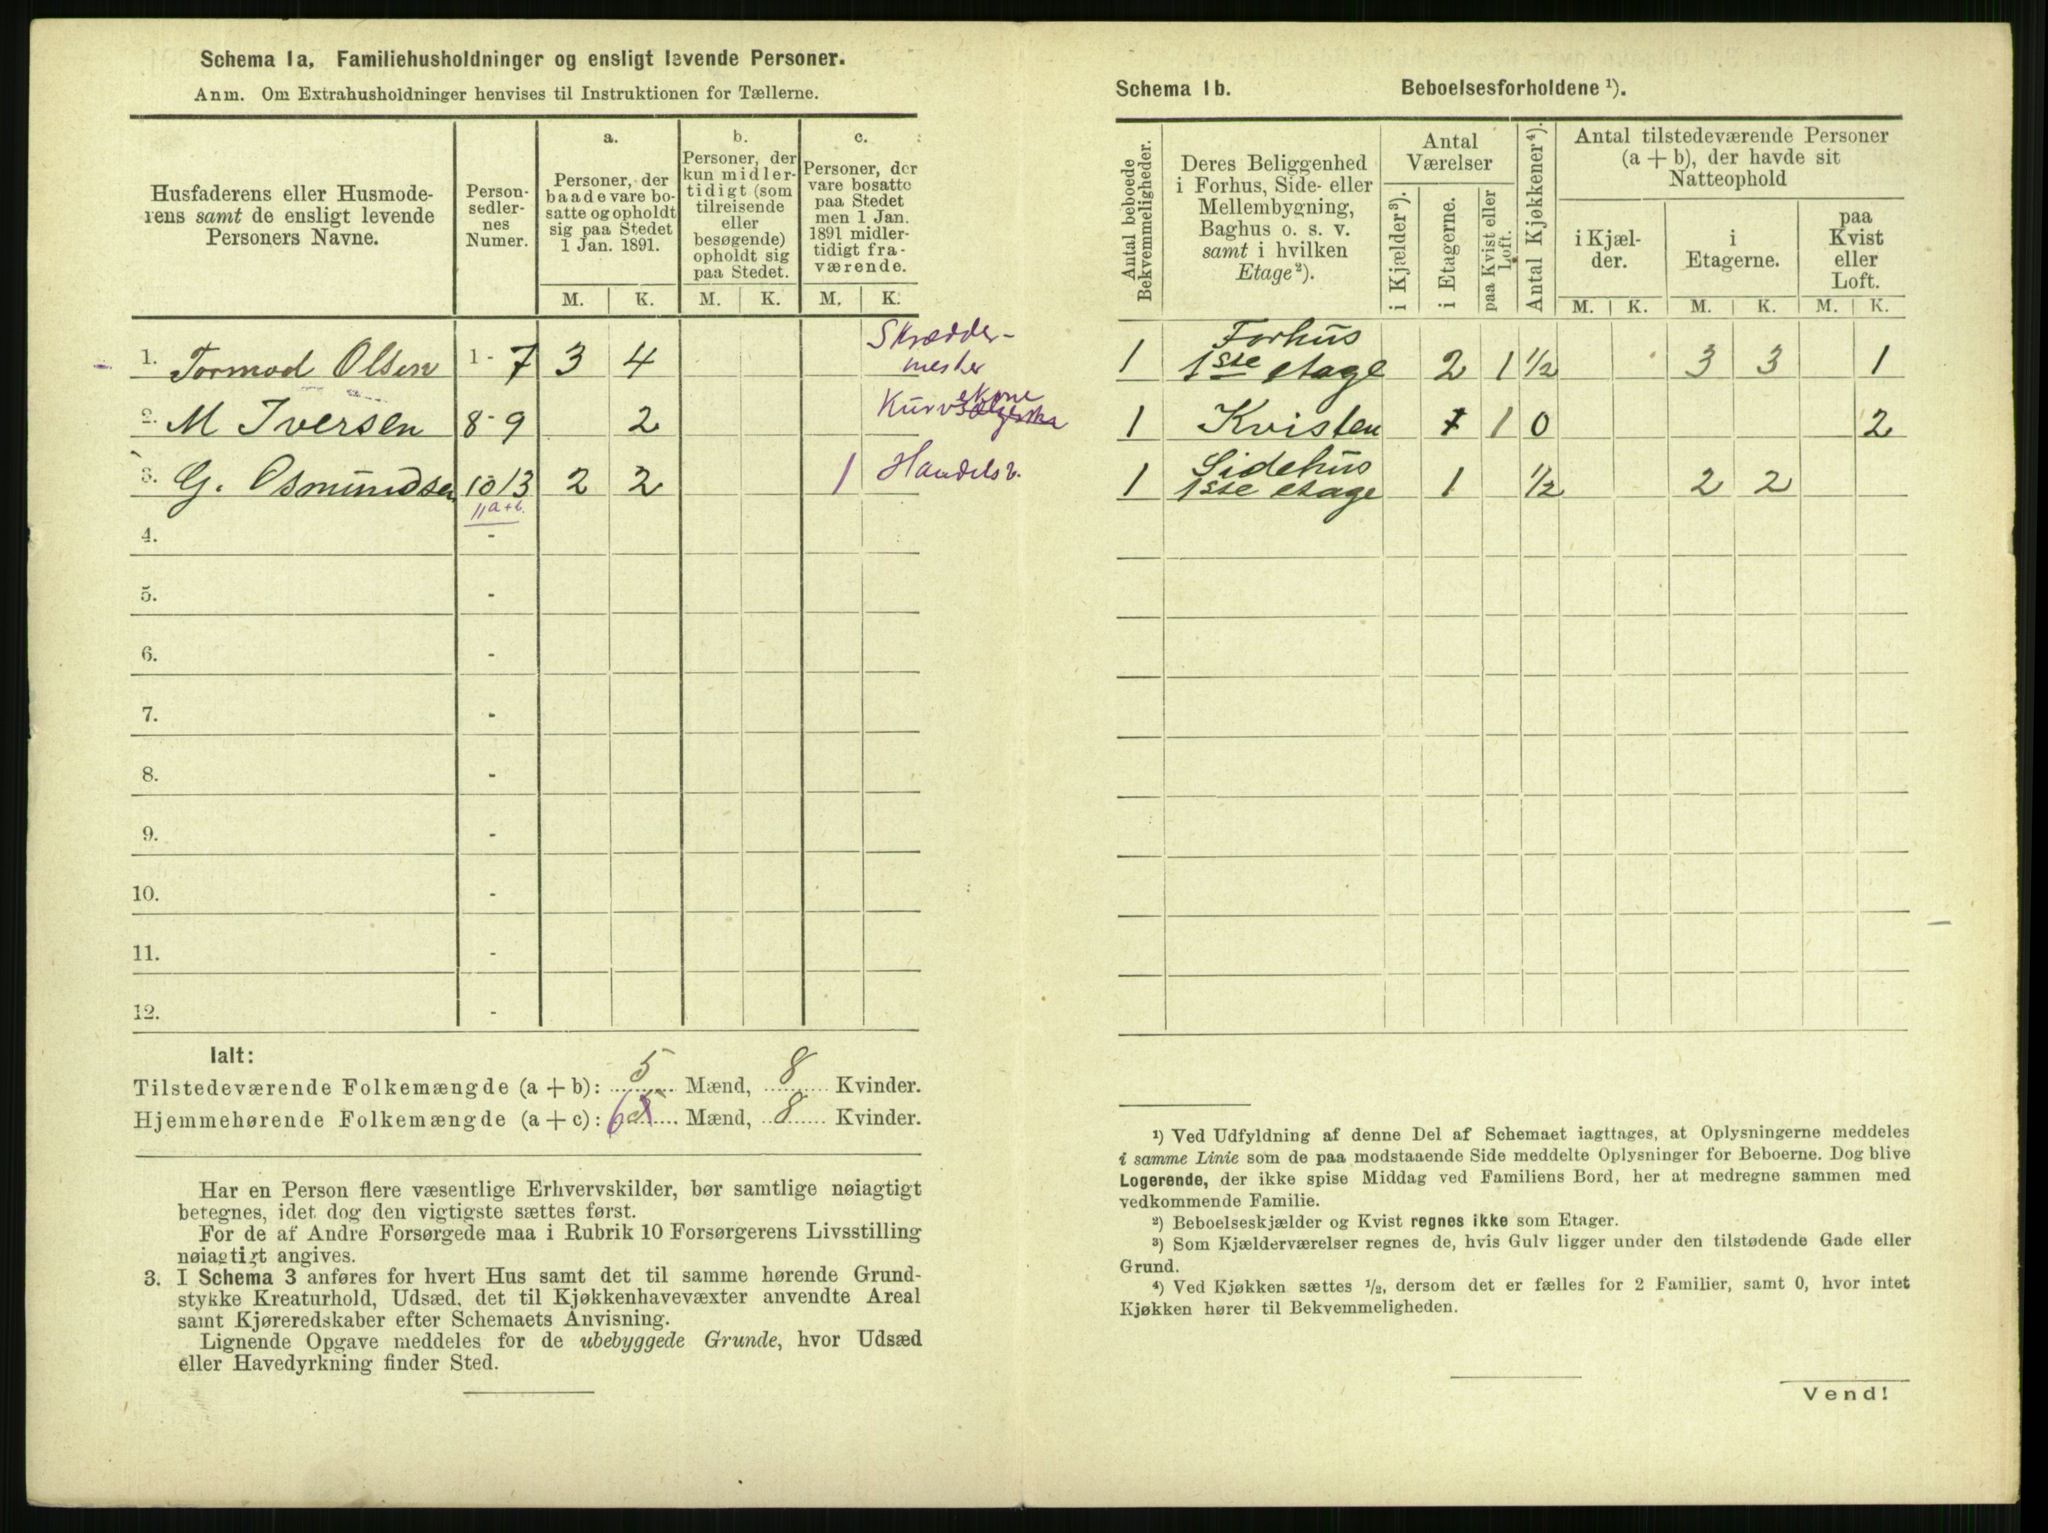 Schema 1a, Familiehusholdninger og ensligt levende Personer.
Anm. Om Extrahusholdninger henvises til Instruktionen for Tællerne.
Husfaderens eller Husmode-
rens samt de ensligt levende
Personers Navne.
Person-
sedler-
nes
Numer.
a.
Personer, der
baade vare bo-
satte og opholdt
sig paa Stedet
1 Jan. 1891.
M. K.
b.
Personer, der
kun midler-
tidigt (som
tilreisende
eller
besøgende)
opholdt sig
paa Stedet.
M. K.
c.
Personer, der
vare bosatte
paa Stedet
men 1 Jan.
1891 midler-
tidigt fra-
værende.
M. K.
1. Tormod Olsen 1 - 7 3 4 Skrædder-
mester
2. M Iversen 8 - 9 2 Kurv
kone
3. G. Osmundsen 10 13 2 2 1 Handelsb.
11 a+b.
4. -
5. -
6. -
7. -
8. -
9. -
10. -
11. -
12. -
Ialt:
Tilstedeværende Folkemængde (a + b): 5 Mænd, 8 Kvinder.
Hjemmehørende Folkemængde (a + c): 6 5 Mænd, 8 Kvinder.
Har en Person flere væsentlige Erhvervskilder, bør samtlige nøiagtigt
betegnes, idet dog den vigtigste sættes først.
For de af Andre Forsørgede maa i Rubrik 10 Forsørgerens Livsstilling
nøiagtigt angives.
3. I Schema 3 anføres for hvert Hus samt det til samme hørende Grund-
stykke Kreaturhold, Udsæd, det til Kjøkkenhavevæxter anvendte Areal
samt Kjøreredskaber efter Schemaets Anvisning.
Lignende Opgave meddeles for de ubebyggede Grunde, hvor Udsæd
eller Havedyrkning finder Sted.
Schema 1b. Beboelsesforholdene ¹).
Antal beboede
Bekvemmeligheder.
Deres Beliggenhed
i Forhus, Side- eller
Mellembygning,
Baghus o. s. v.
samt i hvilken
Etage²).
Antal
Værelser
i Kjælder³).
i Etagerne.
paa Kvist eller
Loft.
Antal Kjøkkener⁴).
Antal tilstedeværende Personer
(a + b), der havde sit
Natteophold
i Kjæl-
der.
i
Etagerne.
paa
Kvist
eller
Loft.
M. K. M. K. M. K.
1 Forhus
1ste etage 2 1 ½ 3 3 1
1 Kvisten 1 1 0 2
1 Sidehus
1ste etage 1 ½ 2 2
¹) Ved Udfyldning af denne Del af Schemaet iagttages, at Oplysningerne meddeles
i samme Linie som de paa modstaaende Side meddelte Oplysninger for Beboerne. Dog blive
Logerende, der ikke spise Middag ved Familiens Bord, her at medregne sammen med
vedkommende Familie.
²) Beboelseskjælder og Kvist regnes ikke som Etager.
³) Som Kjælderværelser regnes de, hvis Gulv ligger under den tilstødende Gade eller
Grund.
⁴) Ved Kjøkken sættes ½, dersom det er fælles for 2 Familier, samt 0, hvor intet
Kjøkken hører til Bekvemmeligheden.
Vend!